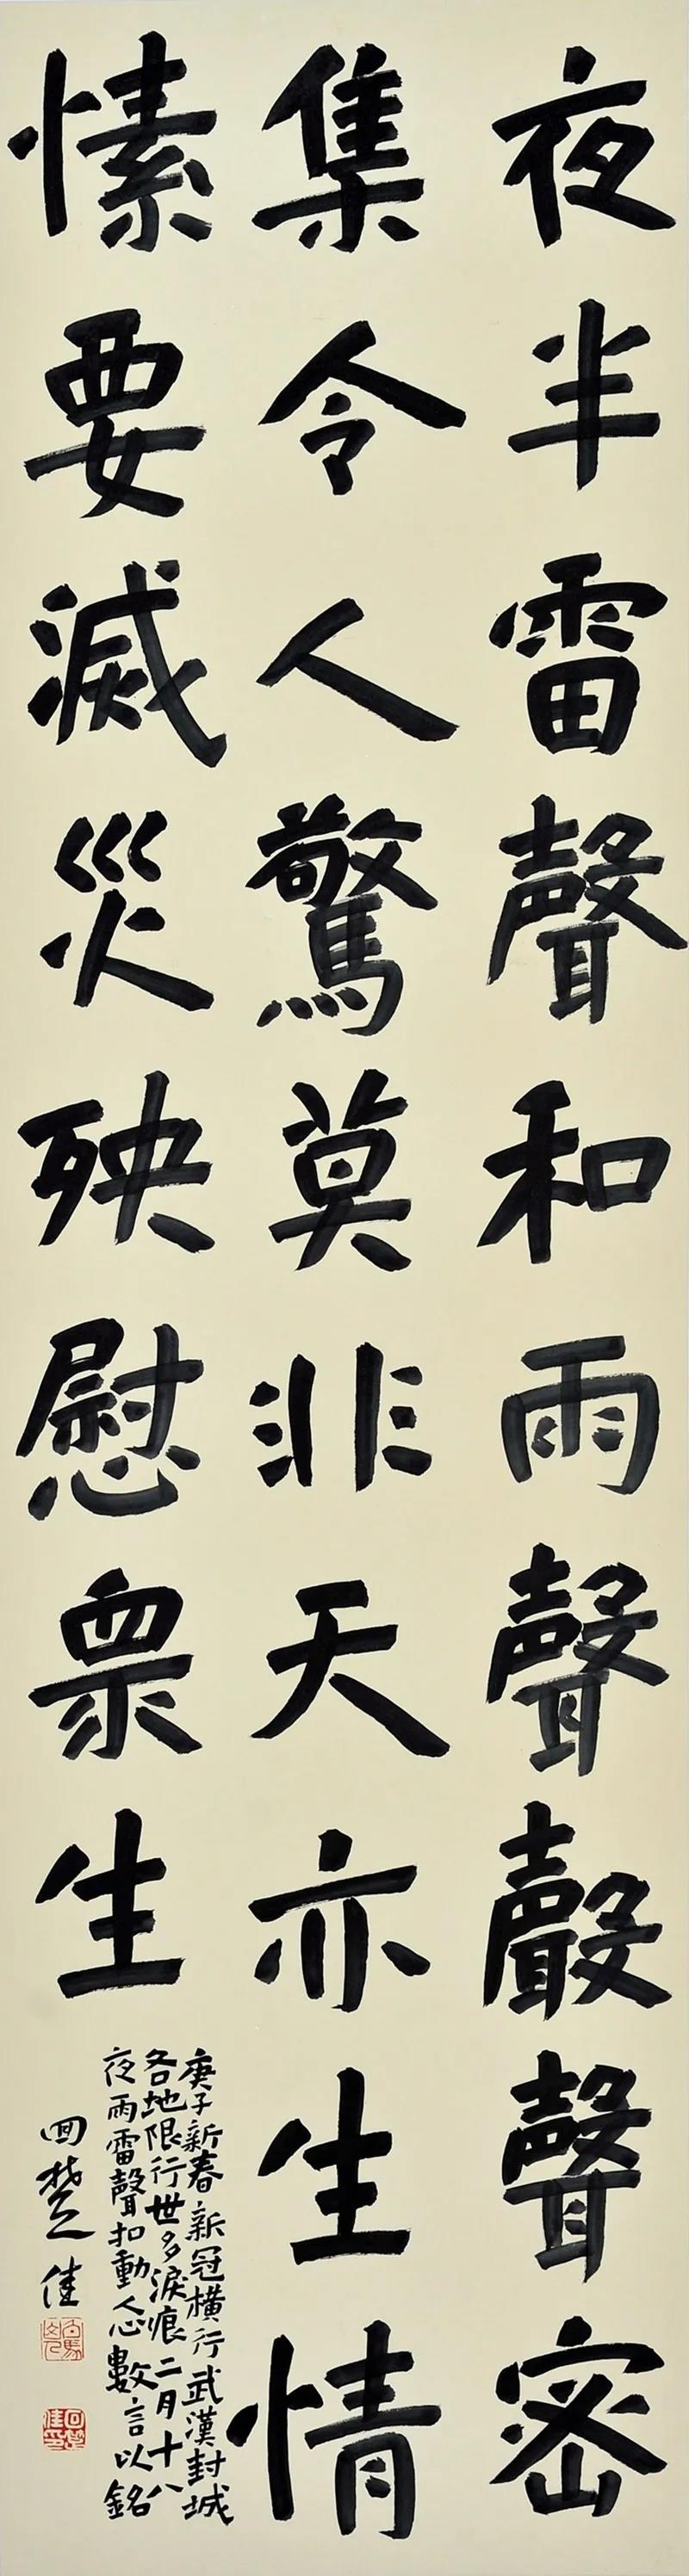 夜半雷聲和雨聲聲聲密
集令人驚莫非天亦生情
愫要滅災殃慰眾生
庚子新春新冠橫行武漢封城
各地限行世多淚痕二月十八
夜雨雷聲扣動人心數言以銘
回楚佳